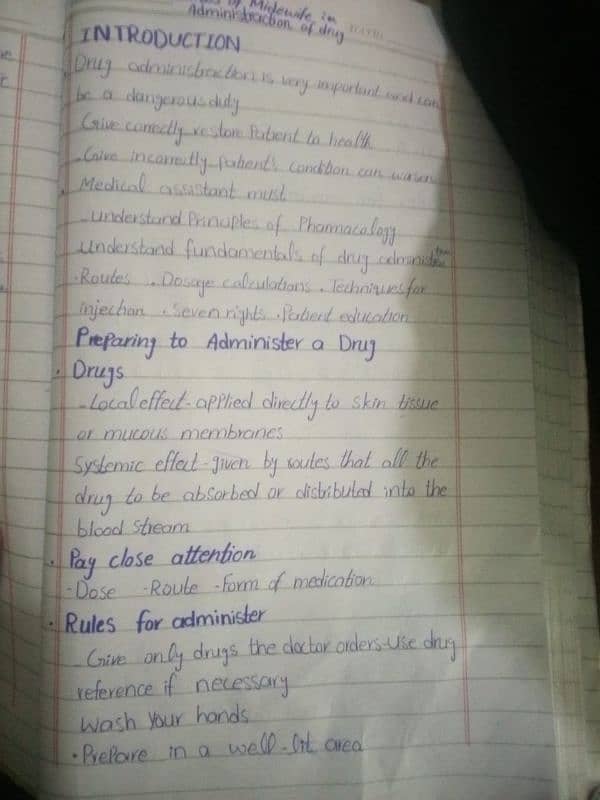 of Midewife in
Administraction of drug
INTRODUCTION
Drug administraction is very important and can
be a dangerous duty
Give correctly restore Patient to health
Give incorrectly patient's condition can worsen
Medical assistant must
- understand Principles of Pharmacology
understand fundamentals of drug administration
- Routes . Dosage calculations . Techniques for
injection . seven rights . Patient education
Preparing to Administer a Drug
. Drugs
- Local effect - applied directly to skin tissue
or mucous membranes
Systemic effect - given by routes that all the
drug to be absorbed or distributed into the
blood stream
. Pay close attention
- Dose - Route - Form of medication
. Rules for administer
- Give only drugs the doctor orders - Use drug
reference if necessary
Wash your hands
. Prepare in a well-lit area